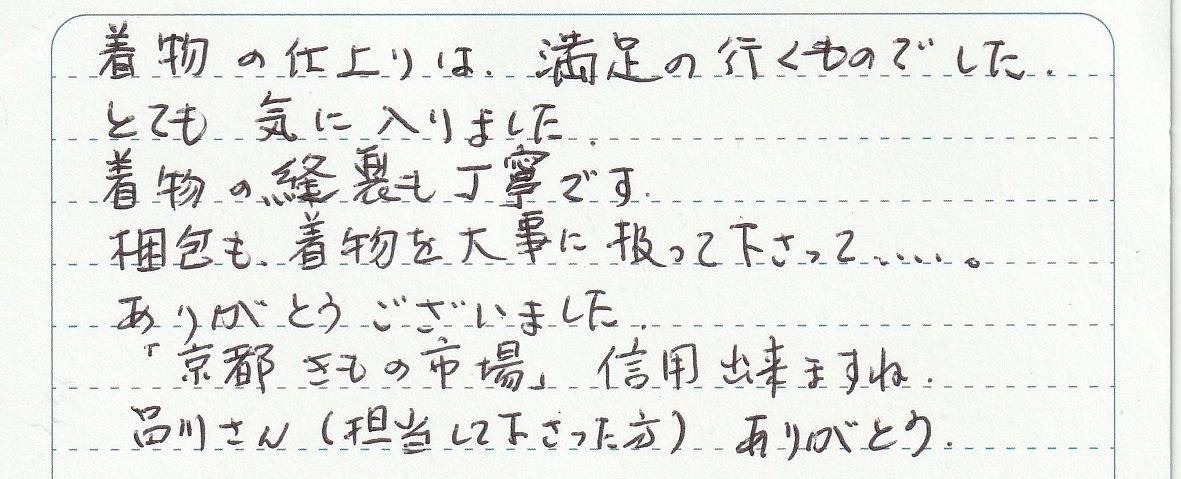 着物の仕上りは、満足の行くものでした.
とても 気に入りました.
着物の縫製も丁寧です.
梱包も、着物を大事に扱って下さって.....。
ありがとうございました.
「京都きもの市場」 信用出来ますね.
品川さん(担当して下さった方) ありがとう.